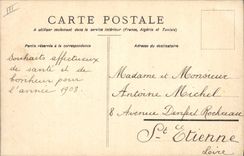 III
CARTE POSTALE
A utiliser seulement dans le service intérieur (France, Algérie et Tunisie)
Partie réservée à la correspondance
Adresse du destinataire
Souhaits affectueux
de santé et de
bonheur pour
l'année 1903.
Madame et Monsieur
Antoine Michel
8 Avenue Denfert Rochereau
St Etienne
Loire